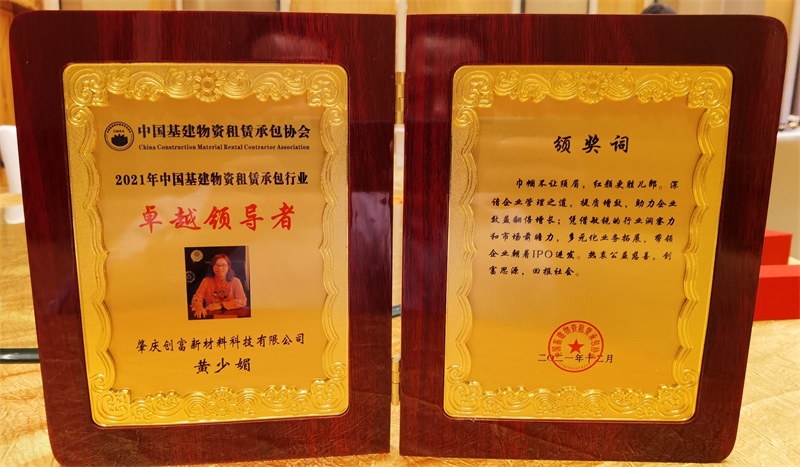 中国基建物资租赁承包协会
China Construction Material Rental Contractor Association
2021年中国基建物资租赁承包行业
卓越领导者
肇庆创富新材料科技有限公司
黄少媚
颁奖词
巾帼不让须眉，红颜更胜儿郎。深
谙企业管理之道，提质增效，助力企业
效益翻倍增长；凭借敏锐的行业洞察力
和市场前瞻力，多元化业务拓展，带领
企业朝着IPO进发。热衷公益慈善，创
富思源，回报社会。
中国基建物资租赁承包协会
二〇二一年十二月